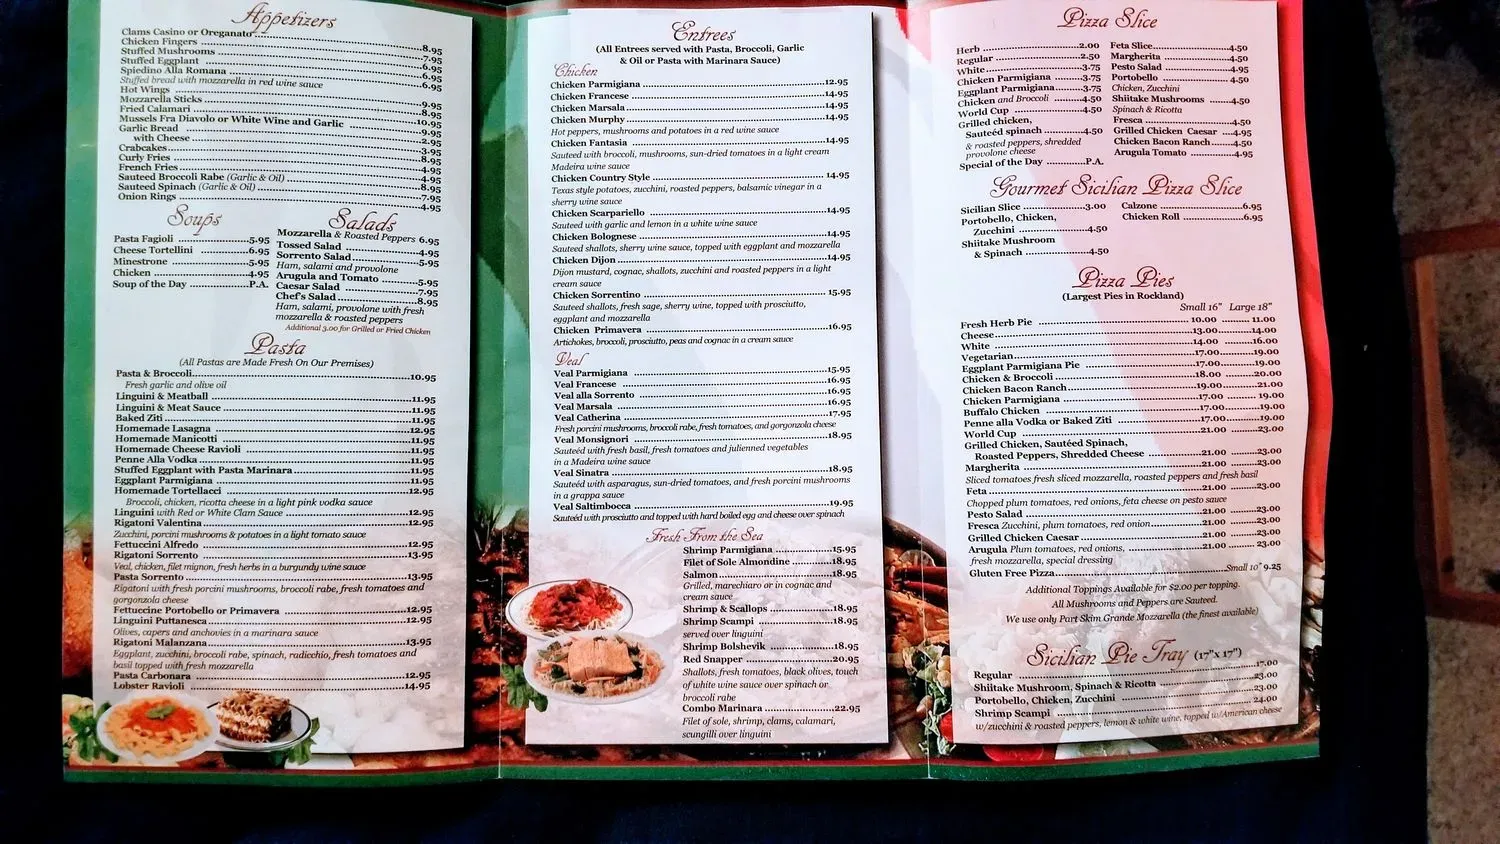 Appetizers
Clams Casino or Oreganato 8.95
Chicken Fingers 7.95
Stuffed Mushrooms 6.95
Stuffed Eggplant 6.95
Spiedino Alla Romana 6.95
Stuffed bread with mozzarella in red wine sauce
Hot Wings 9.95
Mozzarella Sticks 8.95
Fried Calamari 10.95
Mussels Fra Diavolo or White Wine and Garlic 9.95
Garlic Bread 2.95
with Cheese 3.95
Crabcakes 8.95
Curly Fries 4.95
French Fries 4.95
Sauteed Broccoli Rabe (Garlic & Oil) 8.95
Sauteed Spinach (Garlic & Oil) 7.95
Onion Rings 4.95
Soups
Pasta Fagioli 5.95
Cheese Tortellini 6.95
Minestrone 5.95
Chicken 4.95
Soup of the Day P.A.
Salads
Mozzarella & Roasted Peppers 6.95
Tossed Salad 4.95
Sorrento Salad 5.95
Ham, salami and provolone
Arugula and Tomato 5.95
Caesar Salad 7.95
Chef's Salad 8.95
Ham, salami, provolone with fresh
mozzarella & roasted peppers
Additional 3.00 for Grilled or Fried Chicken
Pasta
(All Pastas are Made Fresh On Our Premises)
Pasta & Broccoli 10.95
Fresh garlic and olive oil
Linguini & Meatball 11.95
Linguini & Meat Sauce 11.95
Baked Ziti 11.95
Homemade Lasagna 12.95
Homemade Manicotti 11.95
Homemade Cheese Ravioli 11.95
Penne Alla Vodka 11.95
Stuffed Eggplant with Pasta Marinara 11.95
Eggplant Parmigiana 11.95
Homemade Tortellacci 12.95
Broccoli, chicken, ricotta cheese in a light pink vodka sauce
Linguini with Red or White Clam Sauce 12.95
Rigatoni Valentina 12.95
Zucchini, porcini mushrooms & potatoes in a light tomato sauce
Fettuccini Alfredo 12.95
Rigatoni Sorrento 13.95
Veal, chicken, filet mignon, fresh herbs in a burgundy wine sauce
Pasta Sorrento 13.95
Rigatoni with fresh porcini mushrooms, broccoli rabe, fresh tomatoes and
gorgonzola cheese
Fettuccine Portobello or Primavera 12.95
Linguini Puttanesca 12.95
Olives, capers and anchovies in a marinara sauce
Rigatoni Malanzana 13.95
Eggplant, zucchini, broccoli rabe, spinach, radicchio, fresh tomatoes and
basil topped with fresh mozzarella
Pasta Carbonara 12.95
Lobster Ravioli 14.95
Entrees
(All Entrees served with Pasta, Broccoli, Garlic
& Oil or Pasta with Marinara Sauce)
Chicken
Chicken Parmigiana 12.95
Chicken Francese 14.95
Chicken Marsala 14.95
Chicken Murphy 14.95
Hot peppers, mushrooms and potatoes in a red wine sauce
Chicken Fantasia 14.95
Sauteed with broccoli, mushrooms, sun-dried tomatoes in a light cream
Madeira wine sauce
Chicken Country Style 14.95
Texas style potatoes, zucchini, roasted peppers, balsamic vinegar in a
sherry wine sauce
Chicken Scarpariello 14.95
Sauteed with garlic and lemon in a white wine sauce
Chicken Bolognese 14.95
Sauteed shallots, sherry wine sauce, topped with eggplant and mozzarella
Chicken Dijon 14.95
Dijon mustard, cognac, shallots, zucchini and roasted peppers in a light
cream sauce
Chicken Sorrentino 15.95
Sauteed shallots, fresh sage, sherry wine, topped with prosciutto,
eggplant and mozzarella
Chicken Primavera 16.95
Artichokes, broccoli, prosciutto, peas and cognac in a cream sauce
Veal
Veal Parmigiana 15.95
Veal Francese 16.95
Veal alla Sorrento 16.95
Veal Marsala 16.95
Veal Catherina 17.95
Fresh porcini mushrooms, broccoli rabe, fresh tomatoes, and gorgonzola cheese
Veal Monsignori 18.95
Sauteéd with fresh basil, fresh tomatoes and julienned vegetables
in a Madeira wine sauce
Veal Sinatra 18.95
Sauteéd with asparagus, sun-dried tomatoes, and fresh porcini mushrooms
in a grappa sauce
Veal Saltimbocca 19.95
Sauteéd with prosciutto and topped with hard boiled egg and cheese over spinach
Fresh From the Sea
Shrimp Parmigiana 15.95
Filet of Sole Almondine 18.95
Salmon 18.95
Grilled, marechiaro or in cognac and
cream sauce
Shrimp & Scallops 18.95
Shrimp Scampi 18.95
served over linguini
Shrimp Bolshevik 18.95
Red Snapper 20.95
Shallots, fresh tomatoes, black olives, touch
of white wine sauce over spinach or
broccoli rabe
Combo Marinara 22.95
Filet of sole, shrimp, clams, calamari,
scungilli over linguini
Pizza Slice
Herb 2.00
Regular 2.50
White 3.75
Chicken Parmigiana 3.75
Eggplant Parmigiana 3.75
Chicken and Broccoli 4.50
World Cup 4.50
Grilled chicken,
Sauteéd spinach 4.50
& roasted peppers, shredded
provolone cheese
Special of the Day P.A.
Feta Slice 4.50
Margherita 4.50
Pesto Salad 4.95
Portobello 4.50
Chicken, Zucchini
Shiitake Mushrooms 4.50
Spinach & Ricotta
Fresca 4.50
Grilled Chicken Caesar 4.95
Chicken Bacon Ranch 4.50
Arugula Tomato 4.95
Gourmet Sicilian Pizza Slice
Sicilian Slice 3.00
Portobello, Chicken,
Zucchini 4.50
Shiitake Mushroom
& Spinach 4.50
Calzone 6.95
Chicken Roll 6.95
Pizza Pies
(Largest Pies in Rockland)
Small 16" Large 18"
Fresh Herb Pie 10.00 11.00
Cheese 13.00 14.00
White 14.00 16.00
Vegetarian 17.00 19.00
Eggplant Parmigiana Pie 17.00 19.00
Chicken & Broccoli 18.00 20.00
Chicken Bacon Ranch 19.00 21.00
Chicken Parmigiana 17.00 19.00
Buffalo Chicken 17.00 19.00
Penne alla Vodka or Baked Ziti 17.00 19.00
World Cup 21.00 23.00
Grilled Chicken, Sautéed Spinach,
Roasted Peppers, Shredded Cheese 21.00 23.00
Margherita 21.00 23.00
Sliced tomatoes fresh sliced mozzarella, roasted peppers and fresh basil
Feta 21.00 23.00
Chopped plum tomatoes, red onions, feta cheese on pesto sauce
Pesto Salad 21.00 23.00
Fresca Zucchini, plum tomatoes, red onion 21.00 23.00
Grilled Chicken Caesar 21.00 23.00
Arugula Plum tomatoes, red onions, 21.00 23.00
fresh mozzarella, special dressing
Gluten Free Pizza Small 10" 9.25
Additional Toppings Available for $2.00 per topping.
All Mushrooms and Peppers are Sauteed.
We use only Part Skim Grande Mozzarella (the finest available)
Sicilian Pie Tray (17"x 17")
Regular 17.00
Shiitake Mushroom, Spinach & Ricotta 23.00
Portobello, Chicken, Zucchini 23.00
Shrimp Scampi 24.00
w/zucchini & roasted peppers, lemon & white wine, topped w/American cheese